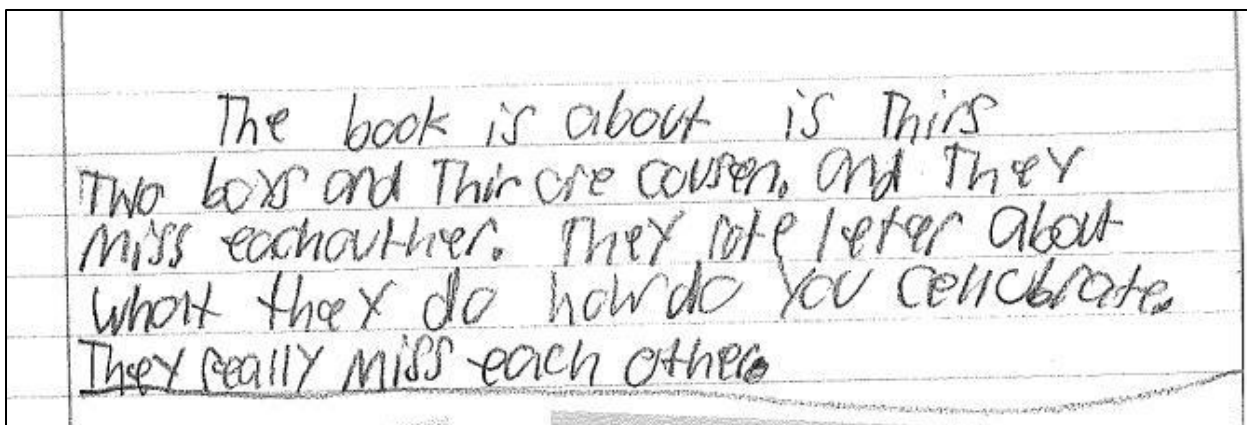 The book is about is Thirs
Two boys and Thir are cousen. and They
miss eachouther. They rote leter about
whatt they do how do you cellcbrate.
They really miss each other.